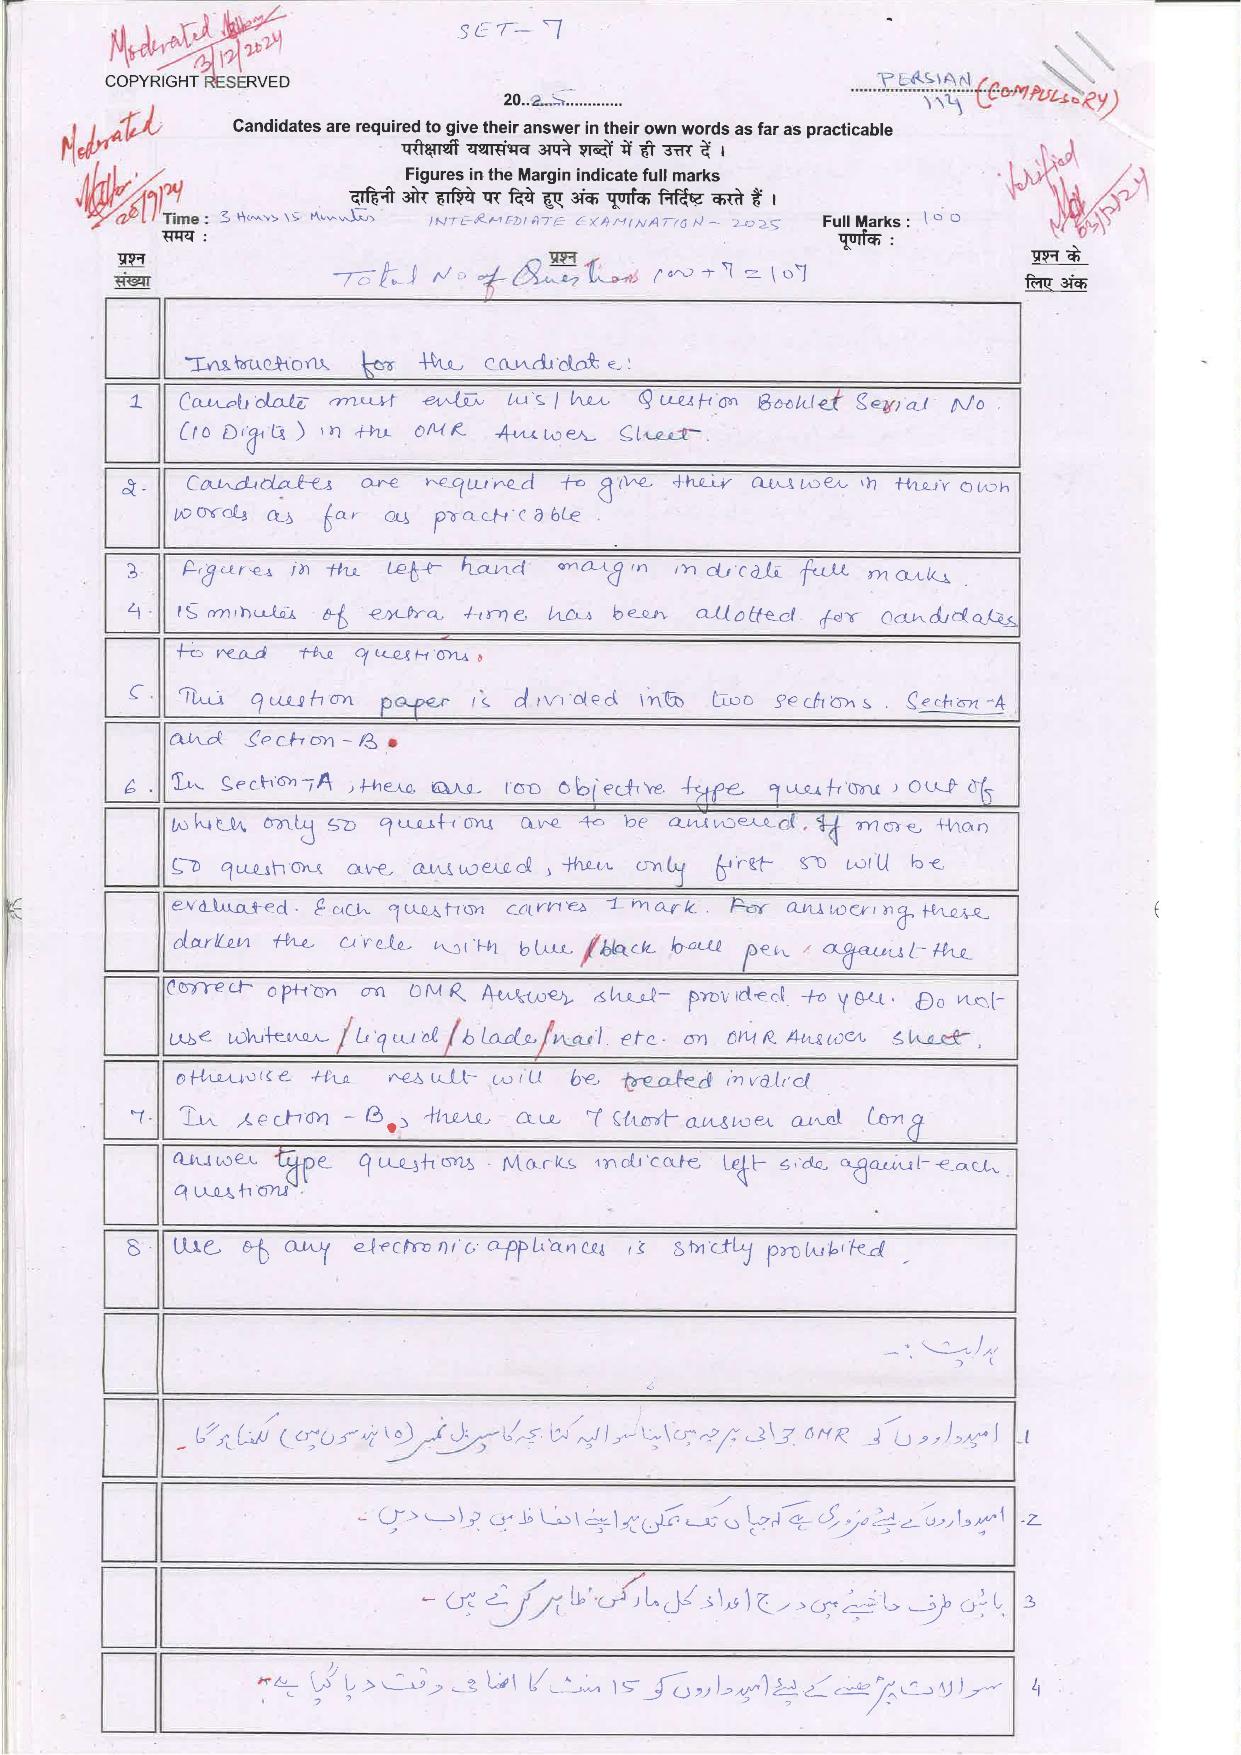 SET-7
Moderated
3/12/2024
COPYRIGHT RESERVED
PERSIAN
114 (COMPULSORY)
20..25..............
Moderated
26/9/24
Verified
03/12/24
Candidates are required to give their answer in their own words as far as practicable
परीक्षार्थी यथासंभव अपने शब्दों में ही उत्तर दें ।
Figures in the Margin indicate full marks
दाहिनी ओर हाशिये पर दिये हुए अंक पूर्णांक निर्दिष्ट करते हैं ।
Time : 3 Hours 15 Minutes INTERMEDIATE EXAMINATION - 2025 Full Marks : 100
समय : पूर्णांक :
प्रश्न संख्या
प्रश्न
प्रश्न के लिए अंक
Total No of Questions 100 + 7 = 107
Instructions for the candidate:
1 Candidate must enter his/her Question Booklet Serial No.
(10 Digits) in the OMR Answer Sheet.
2. Candidates are required to give their answer in their own
words as far as practicable.
3. Figures in the left hand margin indicate full marks.
4. 15 minutes of extra time has been allotted for candidates
to read the questions.
5. This question paper is divided into two sections. Section-A
and Section-B.
6. In Section-A, there are 100 objective type questions, out of
which only 50 questions are to be answered. If more than
50 questions are answered, then only first 50 will be
evaluated. Each question carries 1 mark. For answering these
darken the circle with blue/black ball pen against the
correct option on OMR Answer sheet provided to you. Do not
use whitener/liquid/blade/nail etc. on OMR Answer sheet,
otherwise the result will be treated invalid
7. In section-B, there are 7 short answer and long
answer type questions. Marks indicate left side against each
questions.
8 Use of any electronic appliances is strictly prohibited.
ہدایت :-
1. امیدواروں کو OMR جوابی پرچہ میں اپنا سوالیہ کتابچہ کا سیریل نمبر (10 ہندسوں میں) لکھنا ہوگا -
2. امیدواروں کے لیئے ضروری ہے کہ جہاں تک ممکن ہو اپنے الفاظ میں جواب دیں -
3 بائیں طرف حاشیئے میں درج اعداد کل مارکس ظاہر کرتے ہیں -
4 سوالات پڑھنے کے لیئے امیدواروں کو 15 منٹ کا اضافی وقت دیا گیا ہے -